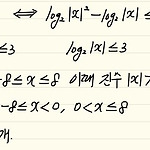 ⟺ log₂|x|² - log₂|x| ≤
≤3 log₂|x| ≤ 3
-8≤x≤8 이때 진수 |x|
-8≤x<0, 0<x≤8
개.